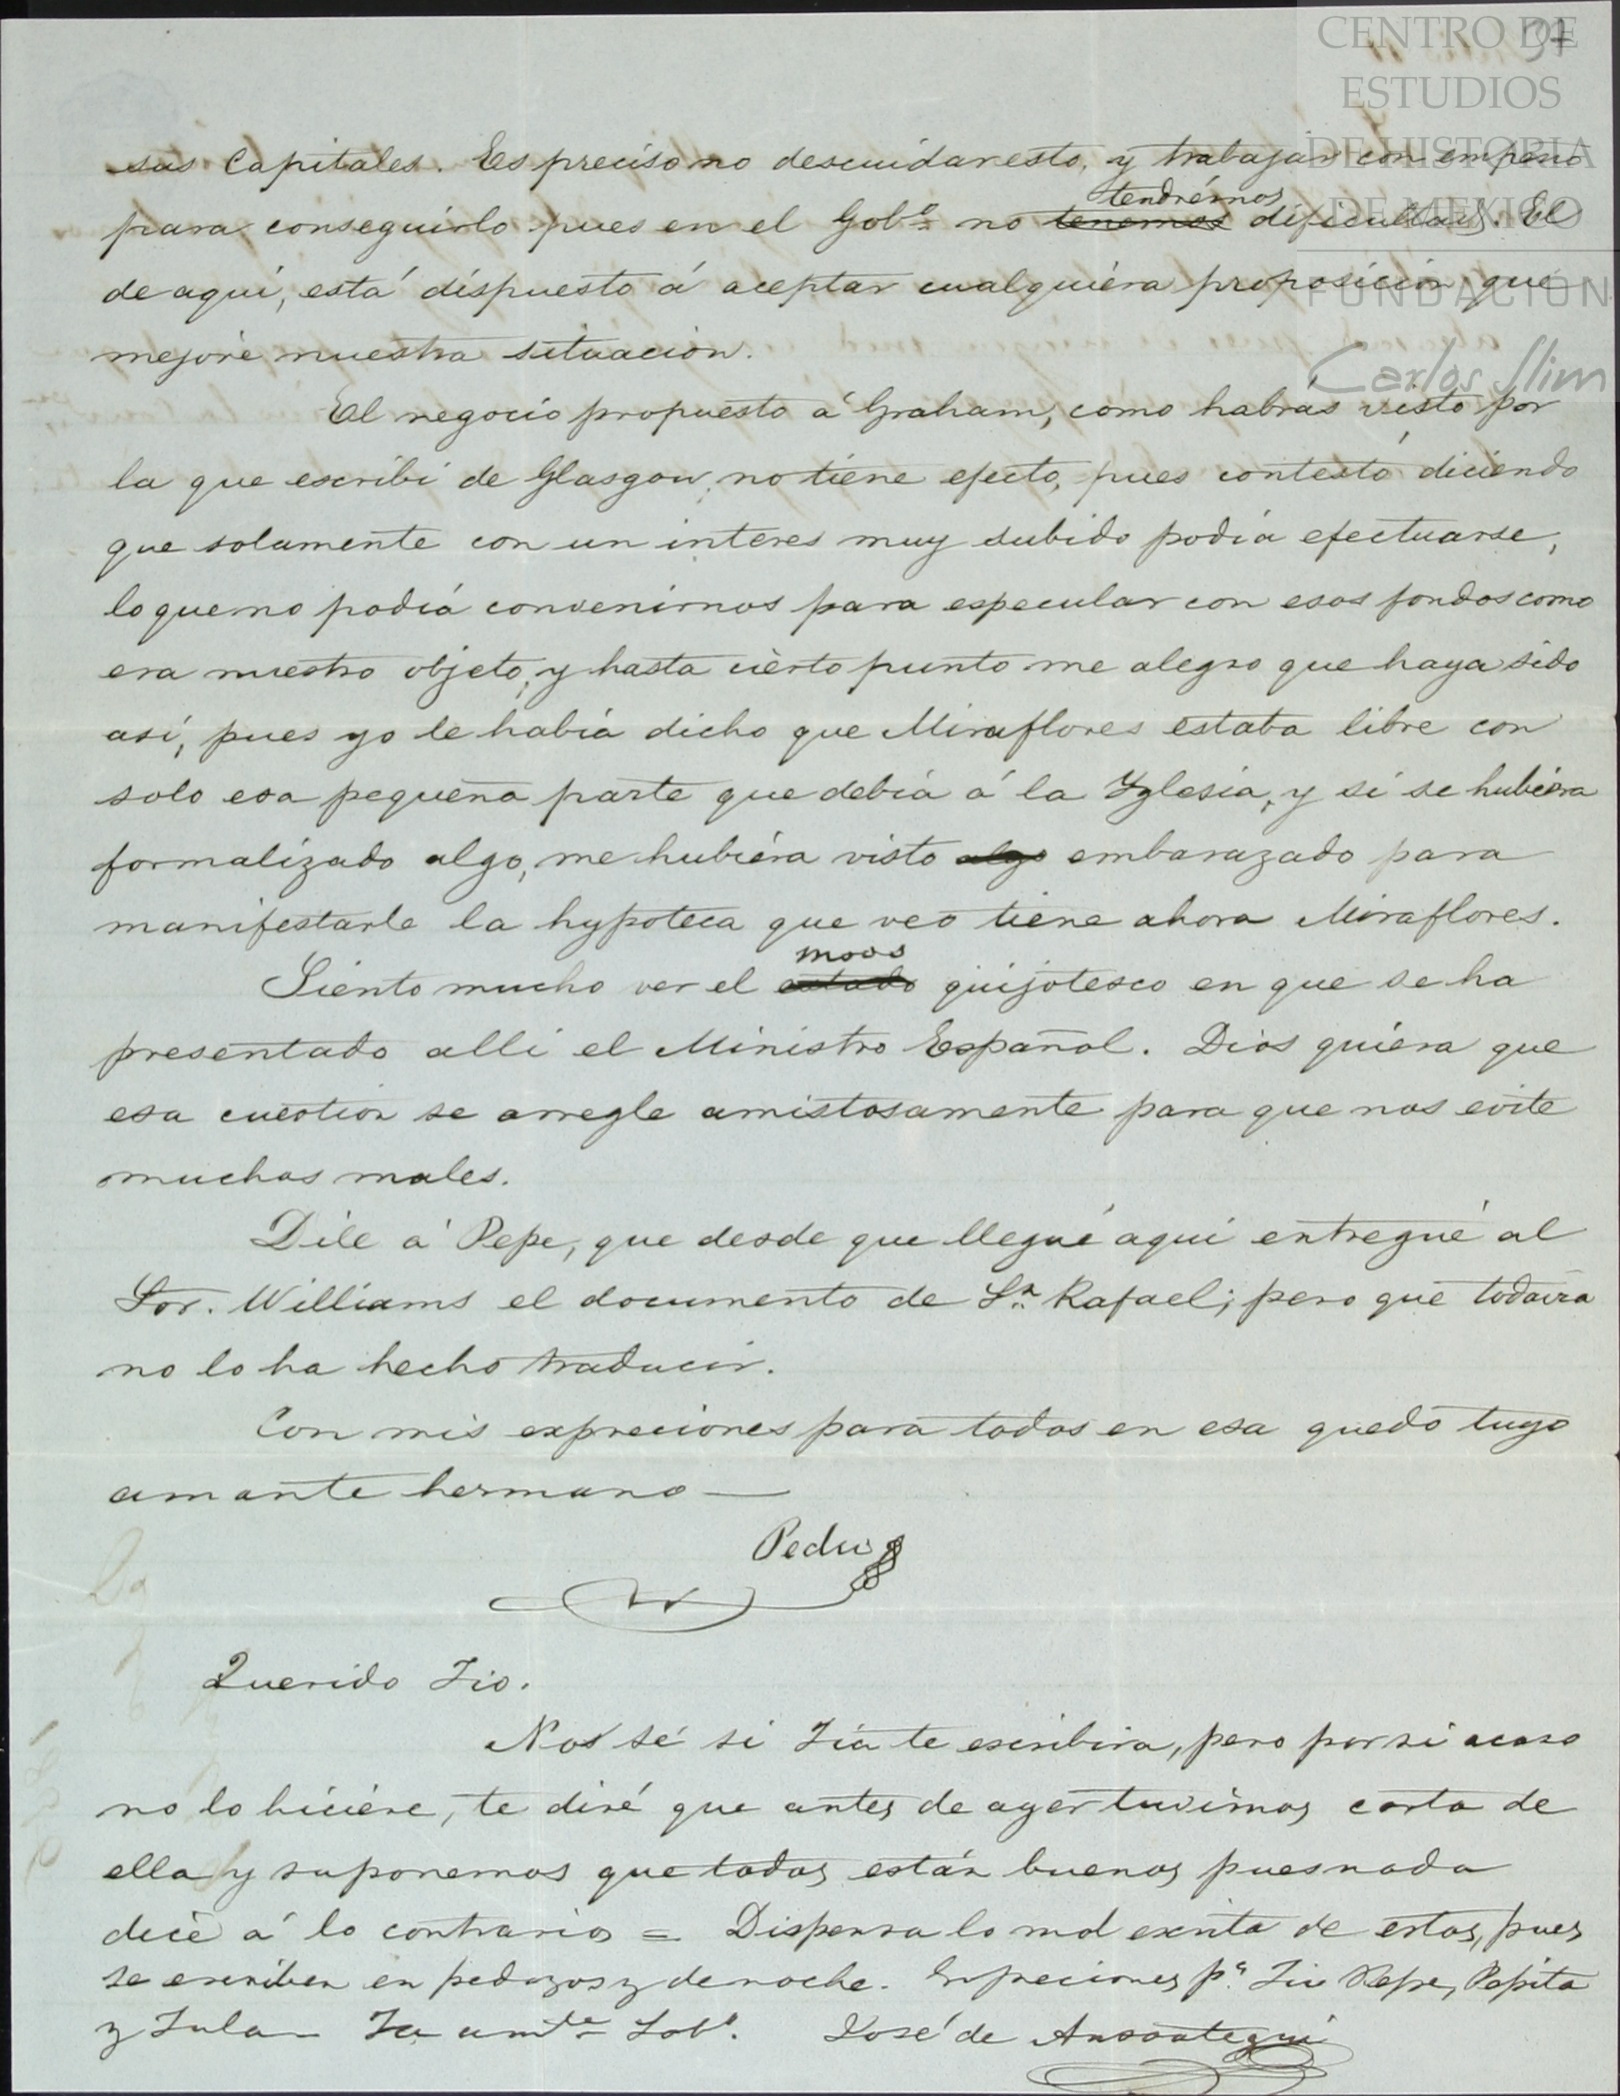 CENTRO DE
ESTUDIOS
DE HISTORIA
DE MEXICO
FUNDACIÓN
Carlos Slim
37
sus Capitales. Es preciso no descuidar esto, y trabajar con empeno
para conseguirlo pues en el Gobº no tenemos tendrémos dificultad. El
de aquí, está dispuesto á aceptar cualquiera proposición que
mejore nuestra situacion.
El negocio propuesto á Graham, como habrás visto por
la que escribí de Glasgow, no tiene efecto, pues contestó diciendo
que solamente con un interes muy subido podia efectuarse,
lo que no podiá convenirnos para especular con esos fondos como
era nuestro objeto, y hasta cierto punto me alegro que haya sido
así, pues yo le habia dicho que Miraflores estaba libre con
solo esa pequeña parte que debia á la Yglesia, y si se hubiera
formalizado algo, me hubiera visto algo embarazado para
manifestarle la hypoteca que veo tiene ahora Miraflores.
Siento mucho ver el estado modo quijotesco en que se ha
presentado alli el Ministro Español. Dios quiera que
esa cuestion se arregle amistosamente para que nos evite
muchos males.
Dile á Pepe, que desde que llegué aqui entregué al
Sor. Williams el documento de Sn. Rafael; pero que todavia
no lo ha hecho traducir.
Con mis expreciones para todos en esa quedo tuyo
amante hermano —
Pedro
Querido Tio.
Nos sé si Tia te escribira, pero por si acaso
no lo hiciere, te diré que antes de ayer tuvimos carta de
ella y suponemos que todos están buenos pues nada
dice á lo contrario = Dispensa lo mal escrito de estas, pues
se escriben en pedazos y de noche. Expreciones pª. Tio Pepe, Pepita
y Tula — Tu amte Sobº. José de Ansoategui